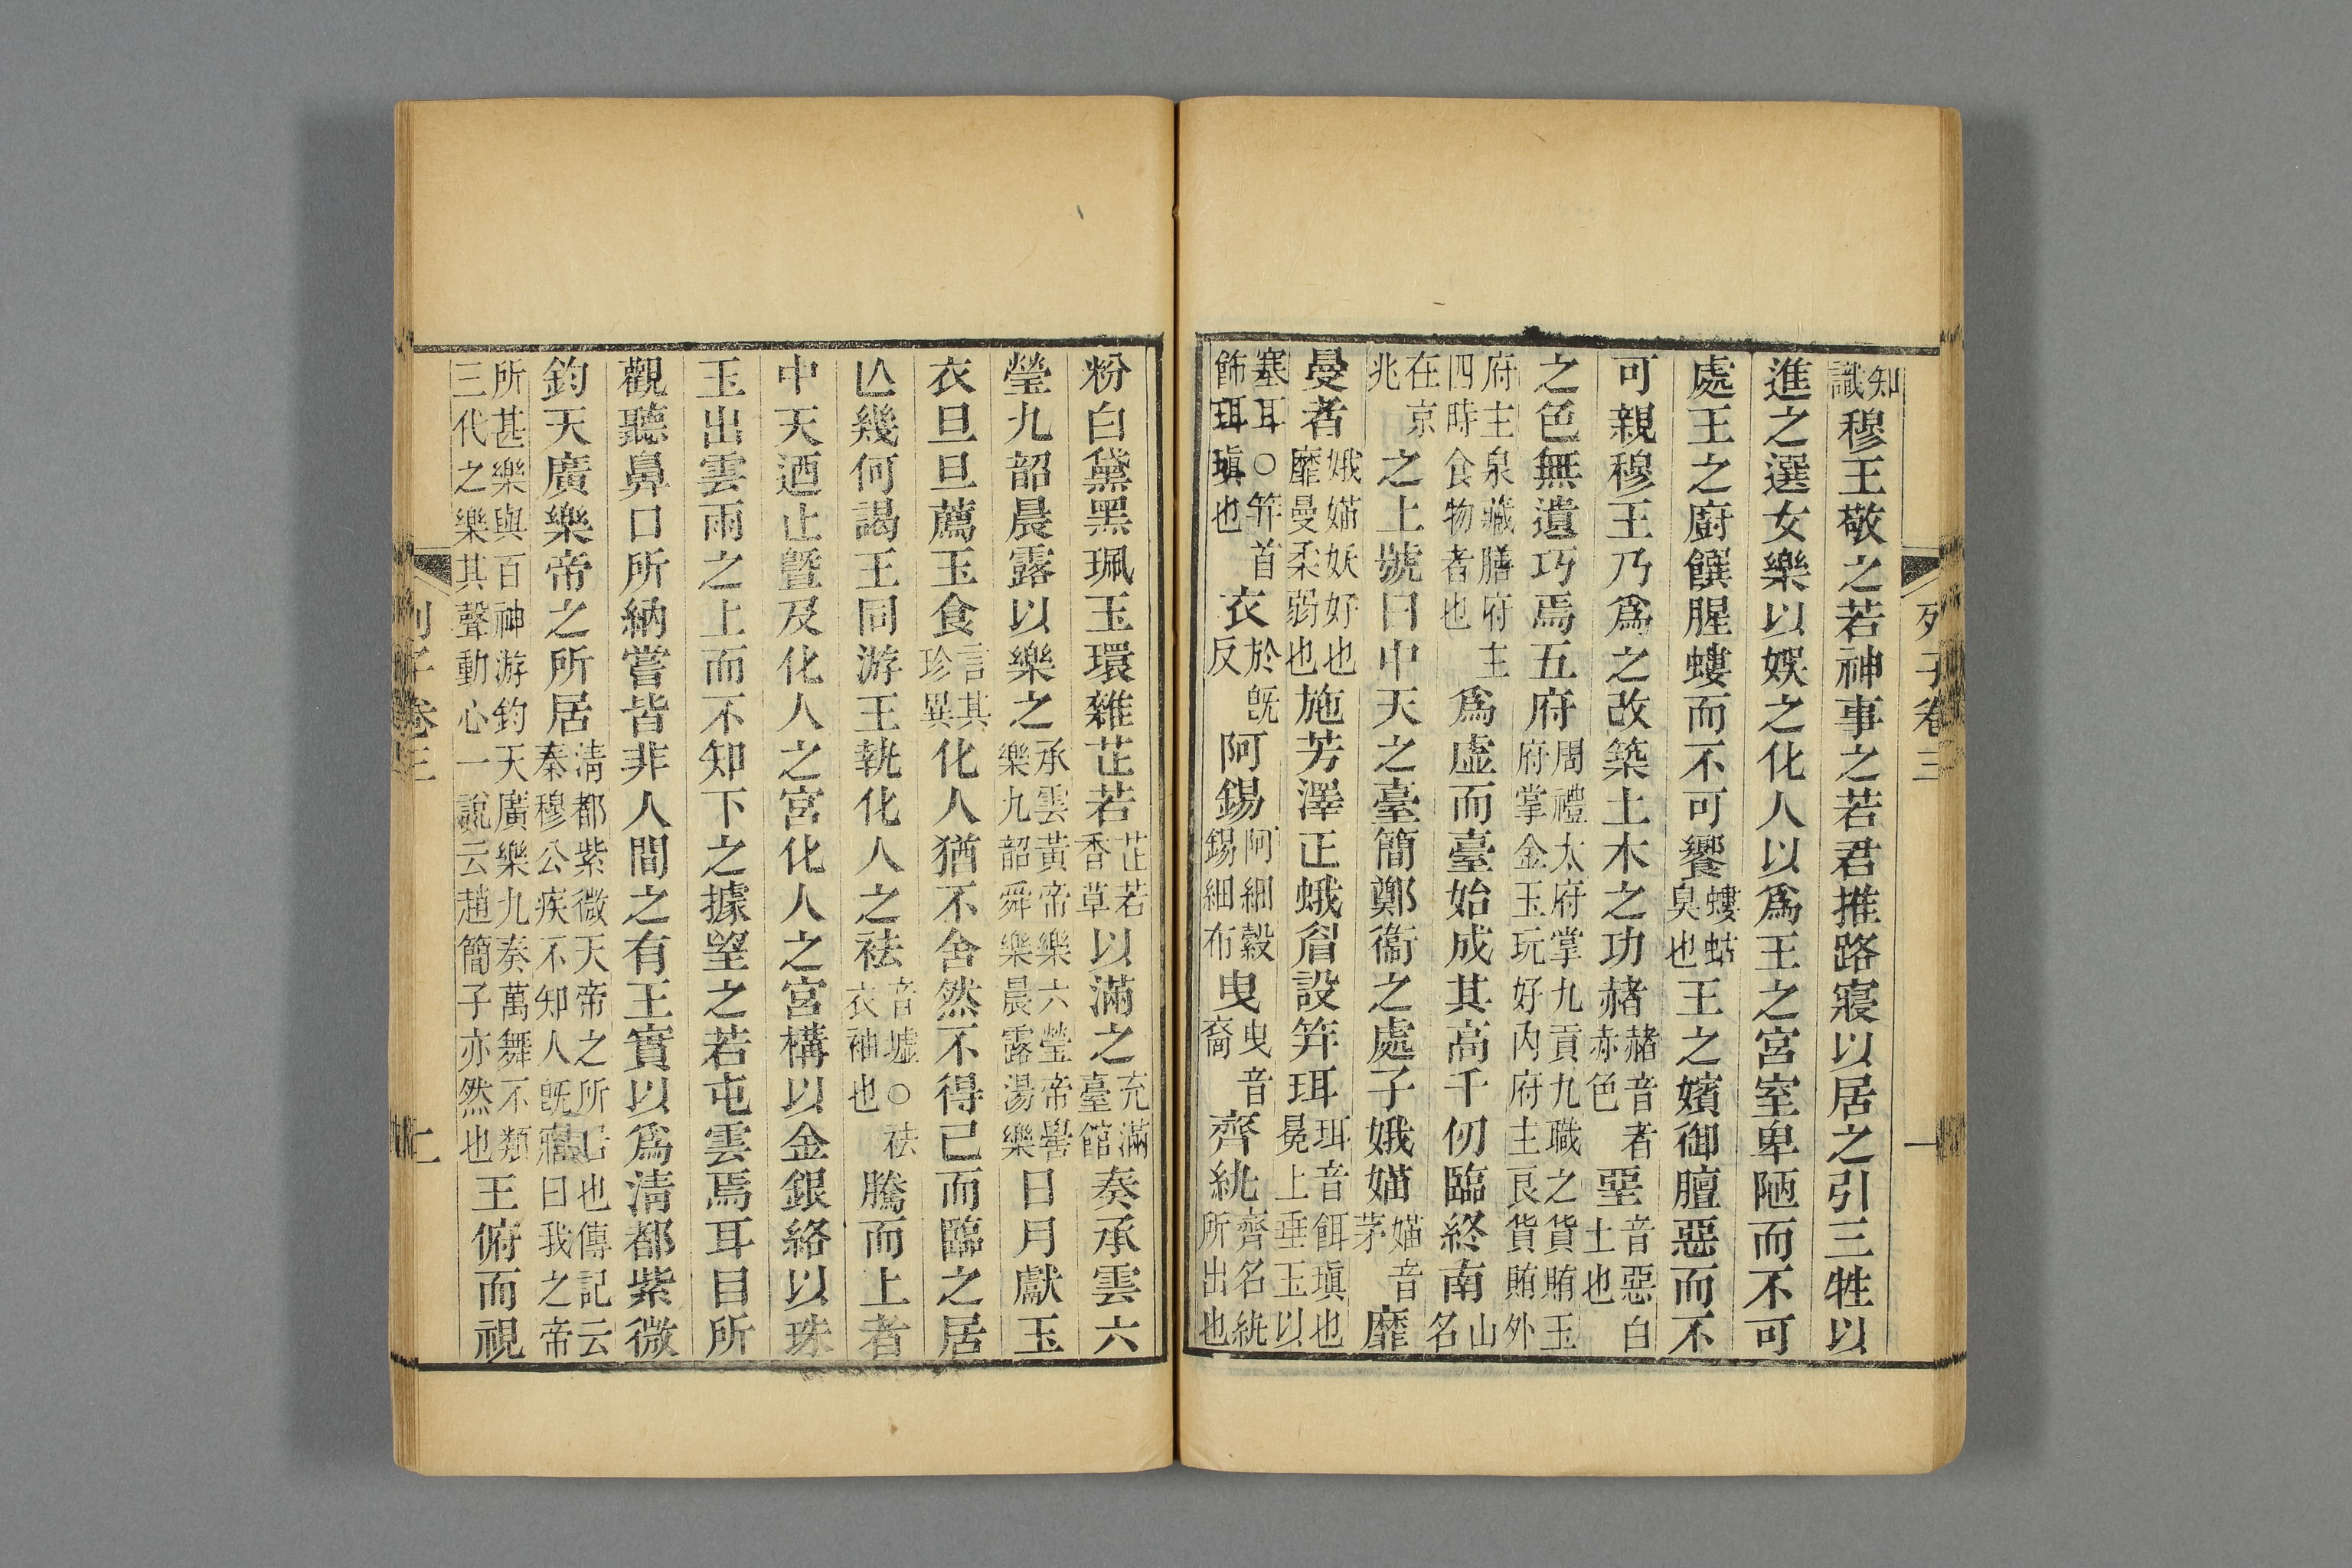 列子卷三 一
知識穆王敬之若神事之若君推路寢以居之引三牲以
進之選女樂以娛之化人以爲王之宮室卑陋而不可
處王之廚饌腥螻而不可饗螻蛄臭也王之嬪御膻惡而不
可親穆王乃爲之改築土木之功赭赭音者赤色堊音惡白土也
之色無遺巧焉五府周禮太府掌九貢九職之貨賄玉府掌金玉玩好內府主良貨賄外
府主泉藏膳府主四時食物者也爲虛而臺始成其高千仞臨終南山名
在京兆之上號曰中天之臺簡鄭衞之處子娥媌媌音茅靡
曼者娥媌妖好也靡曼柔弱也施芳澤正蛾眉設笄珥珥音餌瑱也冕上垂玉以
塞耳○笄首飾珥瑱也衣於旣反阿錫阿細縠錫細布曳曳音裔齊紈齊名紈所出也
粉白黛黑珮玉環雜芷若芷若香草以滿之充滿臺館奏承雲六
瑩九韶晨露以樂之承雲黃帝樂六瑩帝嚳樂九韶舜樂晨露湯樂日月獻玉
衣旦旦薦玉食言其珍異化人猶不舍然不得已而臨之居
亾幾何謁王同游王執化人之袪音墟○袪衣袖也騰而上者
中天迺止曁及化人之宮化人之宮構以金銀絡以珠
玉出雲雨之上而不知下之據望之若屯雲焉耳目所
觀聽鼻口所納嘗皆非人間之有王實以爲清都紫微
鈞天廣樂帝之所居清都紫微天帝之所居也傳記云秦穆公疾不知人旣寤曰我之帝
所甚樂與百神游鈞天廣樂九奏萬舞不類三代之樂其聲動心一說云趙簡子亦然也王俯而視
列子卷三